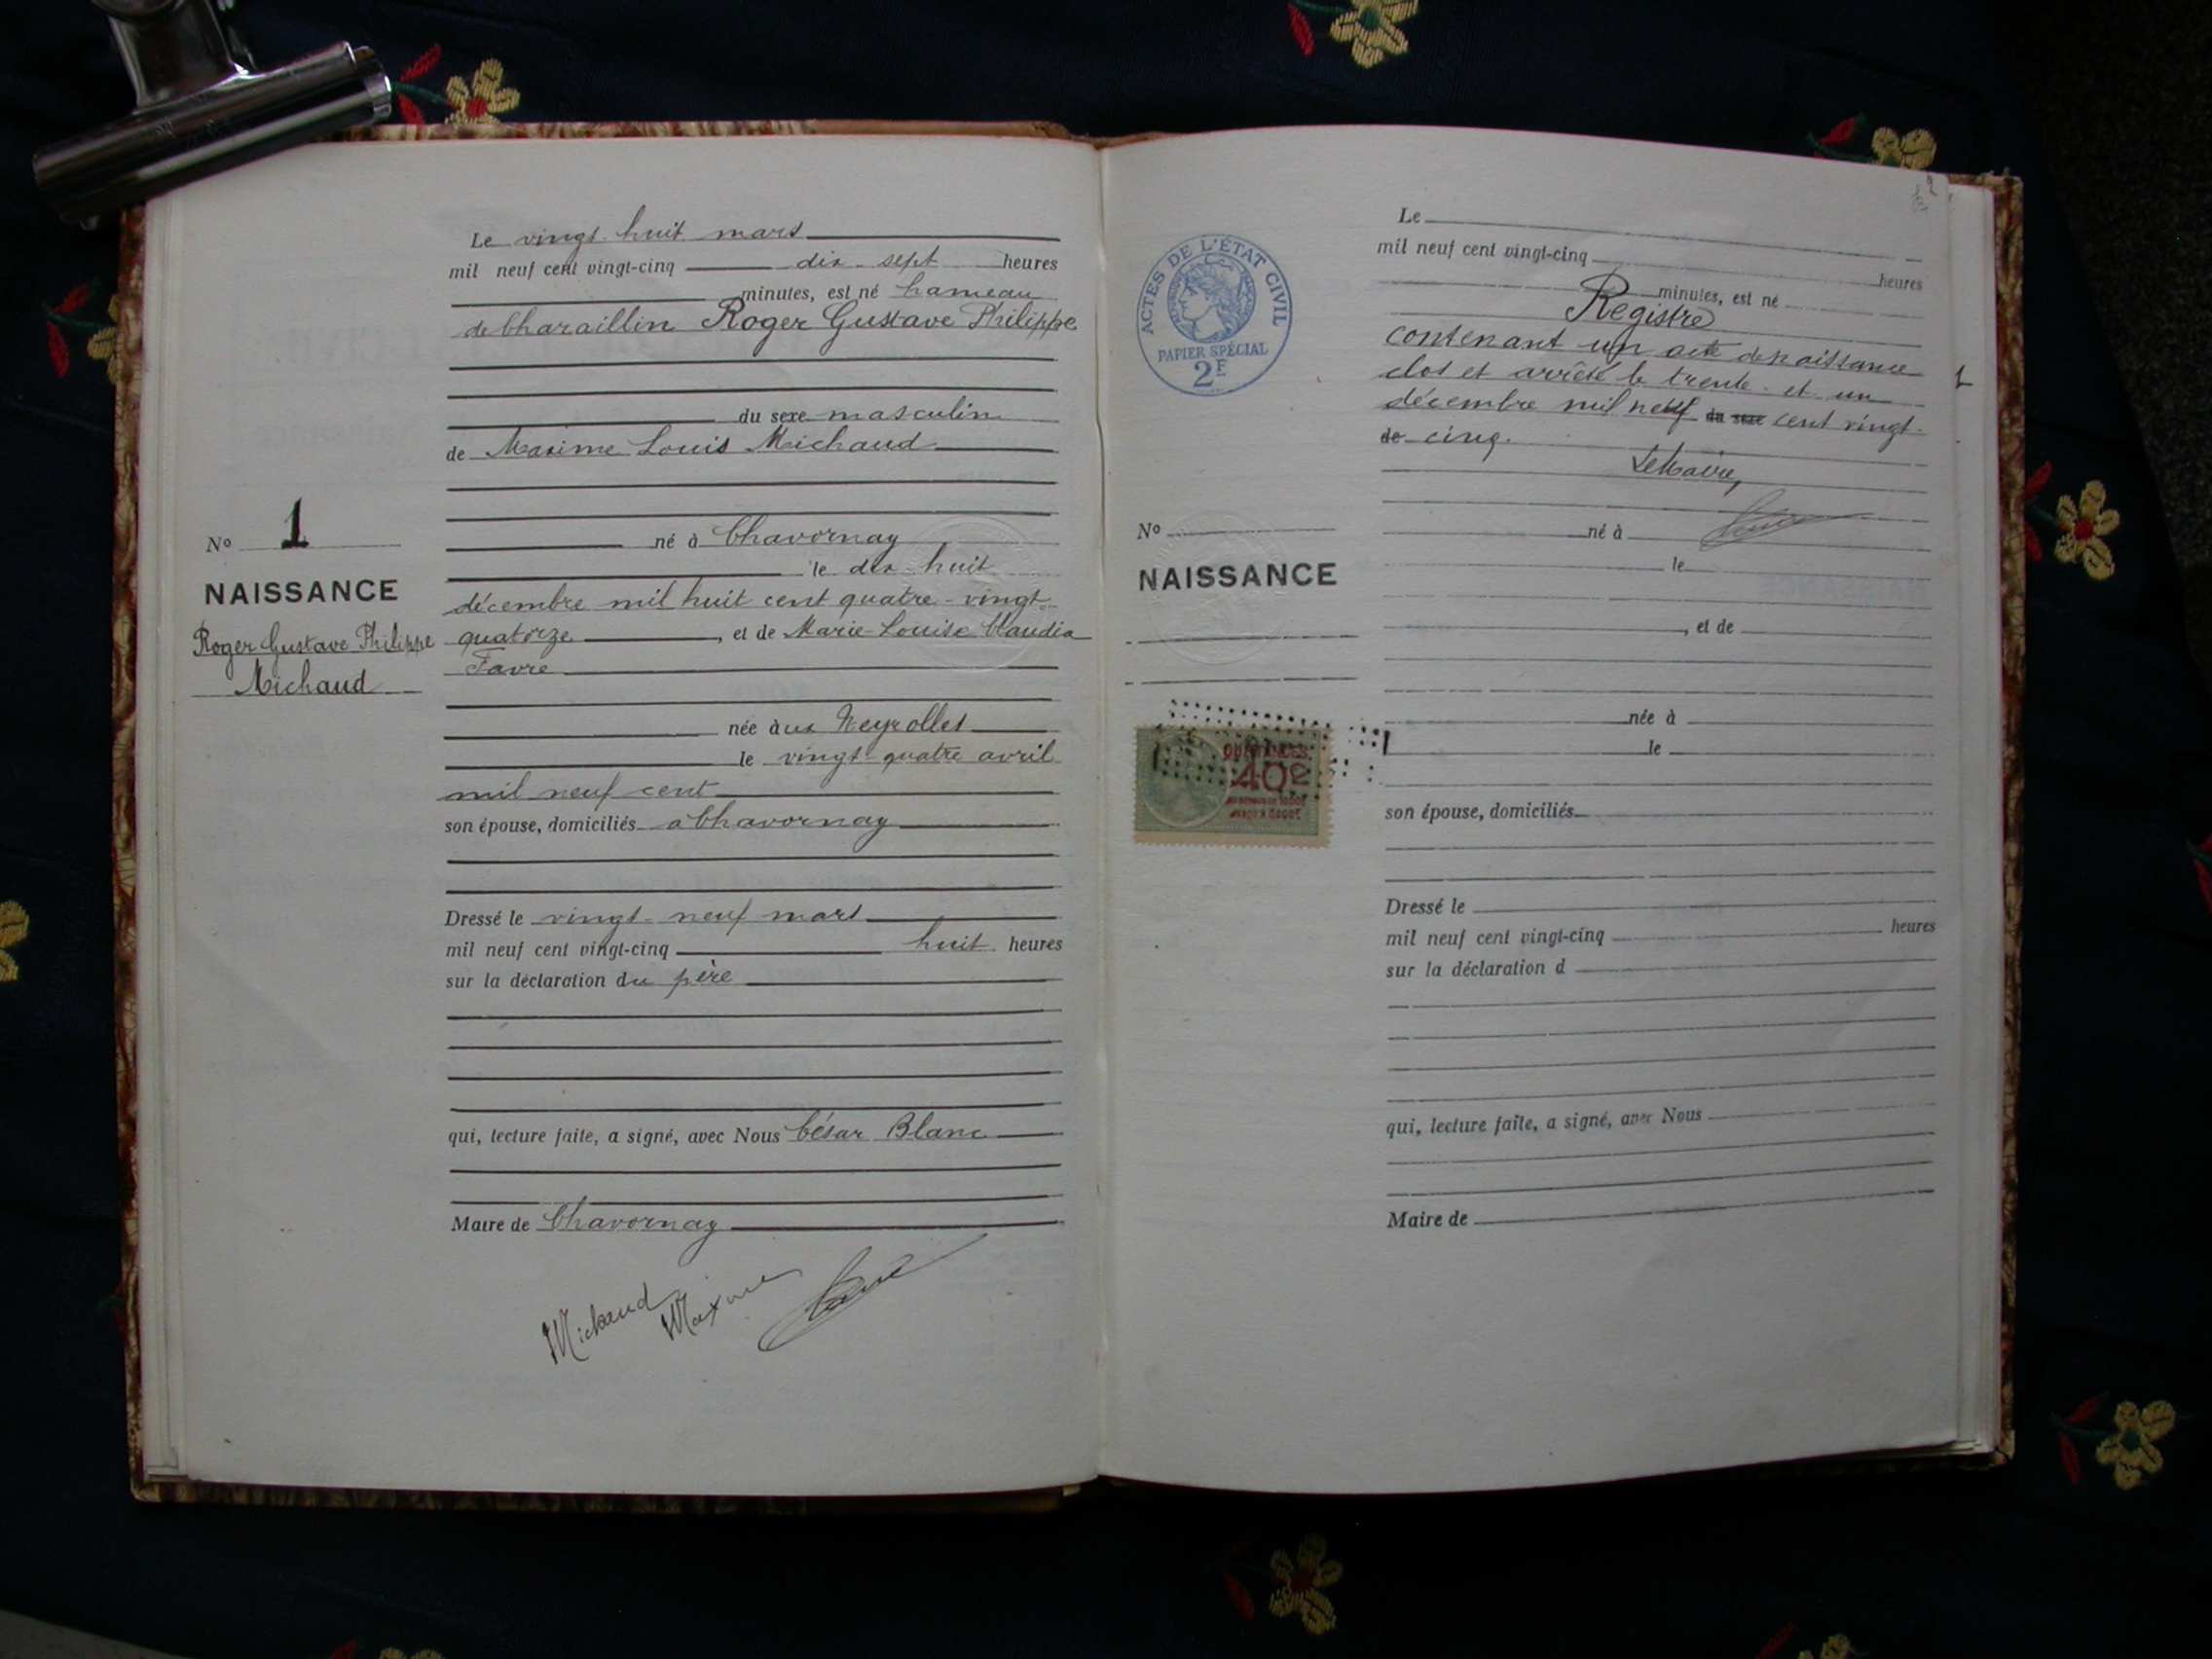 Le vingt-huit mars
mil neuf cent vingt-cinq dix-sept heures
minutes, est né hameau
de Charaillin Roger Gustave Philippe
du sexe masculin
de Maxime Louis Michaud
né à Chavornay
le dix-huit
décembre mil huit cent quatre-vingt-
quatorze, et de Marie-Louise Claudia
Favre
née aux Neyrolles
le vingt-quatre avril
mil neuf cent
son épouse, domiciliés à Chavornay
Dressé le vingt-neuf mars
mil neuf cent vingt-cinq huit heures
sur la déclaration du père
qui, lecture faite, a signé, avec Nous César Blanc
Maire de Chavornay
Michaud
Maxime
No 1
NAISSANCE
Roger Gustave Philippe
Michaud
ACTES DE L'ÉTAT CIVIL
PAPIER SPÉCIAL
2F
Le
mil neuf cent vingt-cinq heures
minutes, est né
Registre
contenant un acte de naissance
clos et arrêté le trente-et-un
décembre mil neuf du sexe cent vingt-
de cinq.
Le Maire,
né à
le
, et de
née à
le
son épouse, domiciliés
Dressé le
mil neuf cent vingt-cinq heures
sur la déclaration d
qui, lecture faite, a signé, avec Nous
Maire de
No
NAISSANCE
QUITTANCES
40c
1